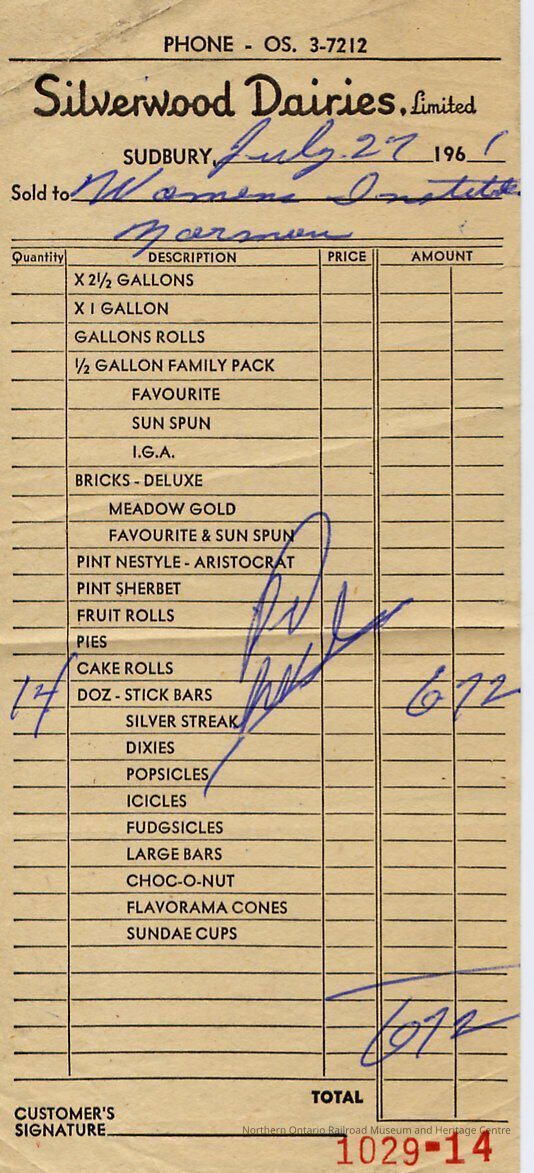 PHONE - OS. 3-7212
Silverwood Dairies, Limited
SUDBURY, July 27 1961
Sold to Womens Institute
Quantity DESCRIPTION PRICE AMOUNT
X 2½ GALLONS
X 1 GALLON
GALLONS ROLLS
½ GALLON FAMILY PACK
FAVOURITE
SUN SPUN
I.G.A.
BRICKS - DELUXE
MEADOW GOLD
FAVOURITE & SUN SPUN
PINT NESTYLE - ARISTOCRAT
PINT SHERBET
FRUIT ROLLS
PIES
CAKE ROLLS
14 DOZ - STICK BARS 6 72
SILVER STREAK
DIXIES
POPSICLES
ICICLES
FUDGSICLES
LARGE BARS
CHOC-O-NUT
FLAVORAMA CONES
SUNDAE CUPS
6 72
TOTAL
CUSTOMER'S
SIGNATURE
Northern Ontario Railroad Museum and Heritage Centre
1029-14